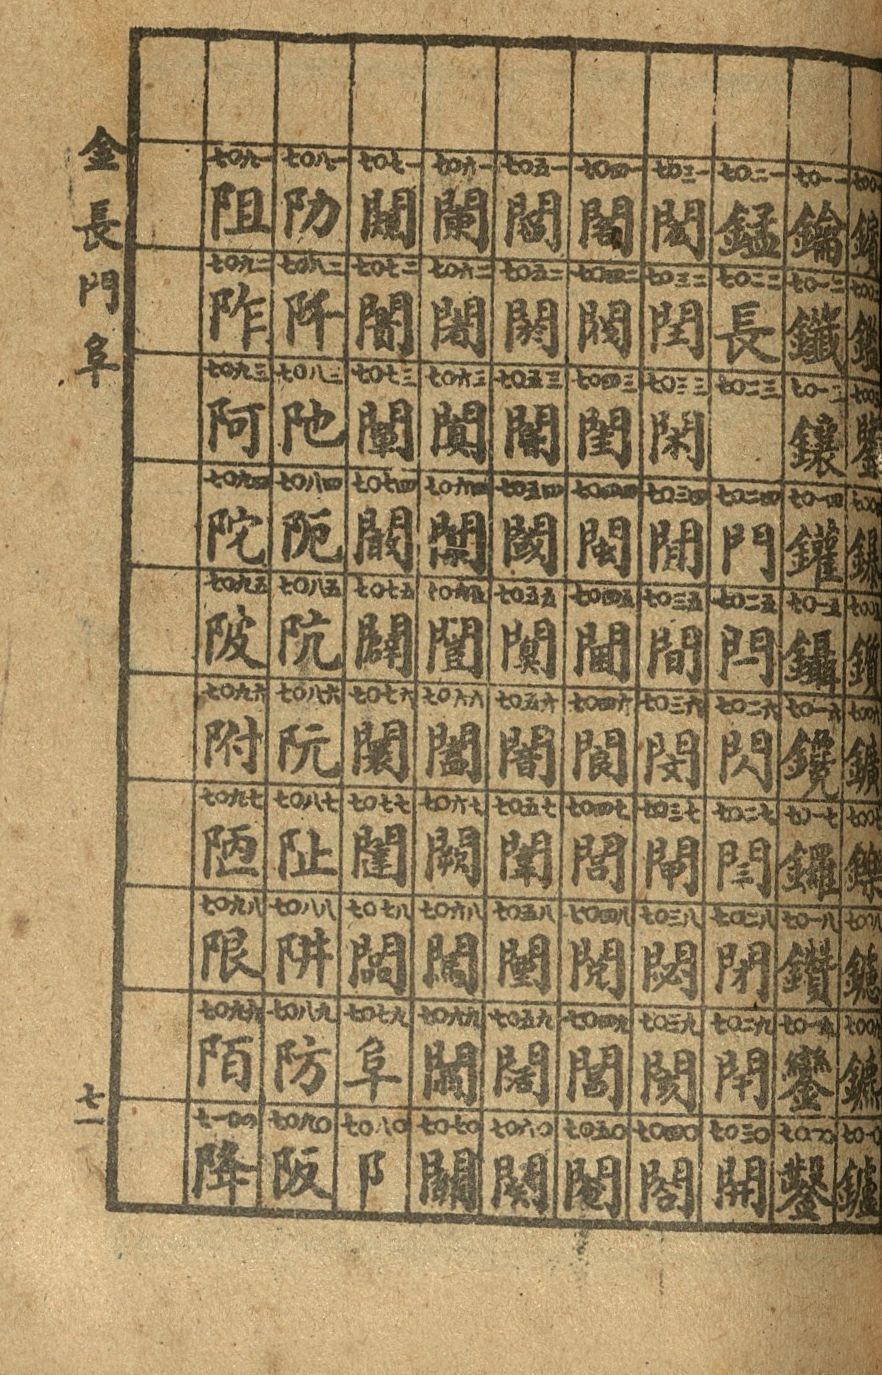 七〇一一 鑰
七〇一二 鑯
七〇一三 鑲
七〇一四 鑵
七〇一五 鑷
七〇一六 鑱
七〇一七 鑼
七〇一八 鑽
七〇一九 鑾
七〇二〇 鑿
七〇二一 錳
七〇二二 長
七〇二三
七〇二四 門
七〇二五 閂
七〇二六 閃
七〇二七 閆
七〇二八 閉
七〇二九 閈
七〇三〇 開
七〇三一 閎
七〇三二 閏
七〇三三 閑
七〇三四 閒
七〇三五 間
七〇三六 閔
七〇三七 閘
七〇三八 閟
七〇三九 閡
七〇四〇 閣
七〇四一 閤
七〇四二 閥
七〇四三 閨
七〇四四 閩
七〇四五 閫
七〇四六 閬
七〇四七 閭
七〇四八 閱
七〇四九
七〇五〇 閹
七〇五一 閻
七〇五二 閼
七〇五三
七〇五四 閾
七〇五五 闃
七〇五六 闇
七〇五七 闈
七〇五八 闉
七〇五九 闊
七〇六〇 闋
七〇六一 闌
七〇六二 闍
七〇六三 闐
七〇六四 闑
七〇六五 闓
七〇六六 闔
七〇六七 闕
七〇六八 闖
七〇六九
七〇七〇 關
七〇七一
七〇七二
七〇七三 闡
七〇七四 闞
七〇七五 闢
七〇七六 闤
七〇七七 闥
七〇七八
七〇七九 阜
七〇八〇 阝
七〇八一 阞
七〇八二 阡
七〇八三 阤
七〇八四 阨
七〇八五 阬
七〇八六 阮
七〇八七 阯
七〇八八 阱
七〇八九 防
七〇九〇 阪
七〇九一 阻
七〇九二 阼
七〇九三 阿
七〇九四 陀
七〇九五 陂
七〇九六 附
七〇九七 陋
七〇九八 限
七〇九九 陌
七一〇〇 降
金長門阜
七一